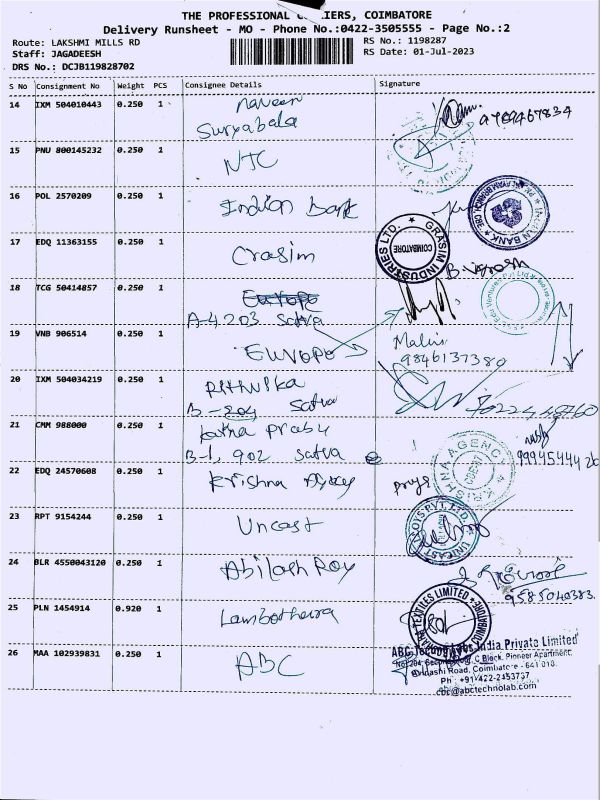 THE PROFESSIONAL COURIERS, COIMBATORE
Delivery Runsheet - MO - Phone No.:0422-3505555 - Page No.:2
Route: LAKSHMI MILLS RD
Staff: JAGADEESH
DRS No.: DCJB119828702
RS No.: 1198287
RS Date: 01-Jul-2023
S No Consignment No Weight PCS Consignee Details Signature
14 IXM 504010443 0.250 1 Naveen
Suryabala
9789467834
15 PNU 800145232 0.250 1 NTC
16 POL 2570209 0.250 1 Indian Bank
17 EDQ 11363155 0.250 1 Grasim
GRASIM INDUSTRIES LTD. COIMBATORE
18 TCG 50414857 0.250 1 Europe
A-4 203 Satva
19 VNB 906514 0.250 1 Europe
9846137380
20 IXM 504034219 0.250 1 Rithvika
B-204 Satva
21 CMM 988000 0.250 1
B-1, 902 Satva
22 EDQ 24570608 0.250 1 Krishna
KRISHNA AGENCY
23 RPT 9154244 0.250 1 Uncast
24 BLR 4550043120 0.250 1 Abilash Roy
9585040383
25 PLN 1454914 0.920 1
TEXTILES LIMITED
26 MAA 102939831 0.250 1 ABC
ABC Techno Labs India Private Limited
C Block, Pioneer Apartment
Avinashi Road, Coimbatore - 641 018.
Ph : +91-422-2453737
cbe@abctechnolab.com